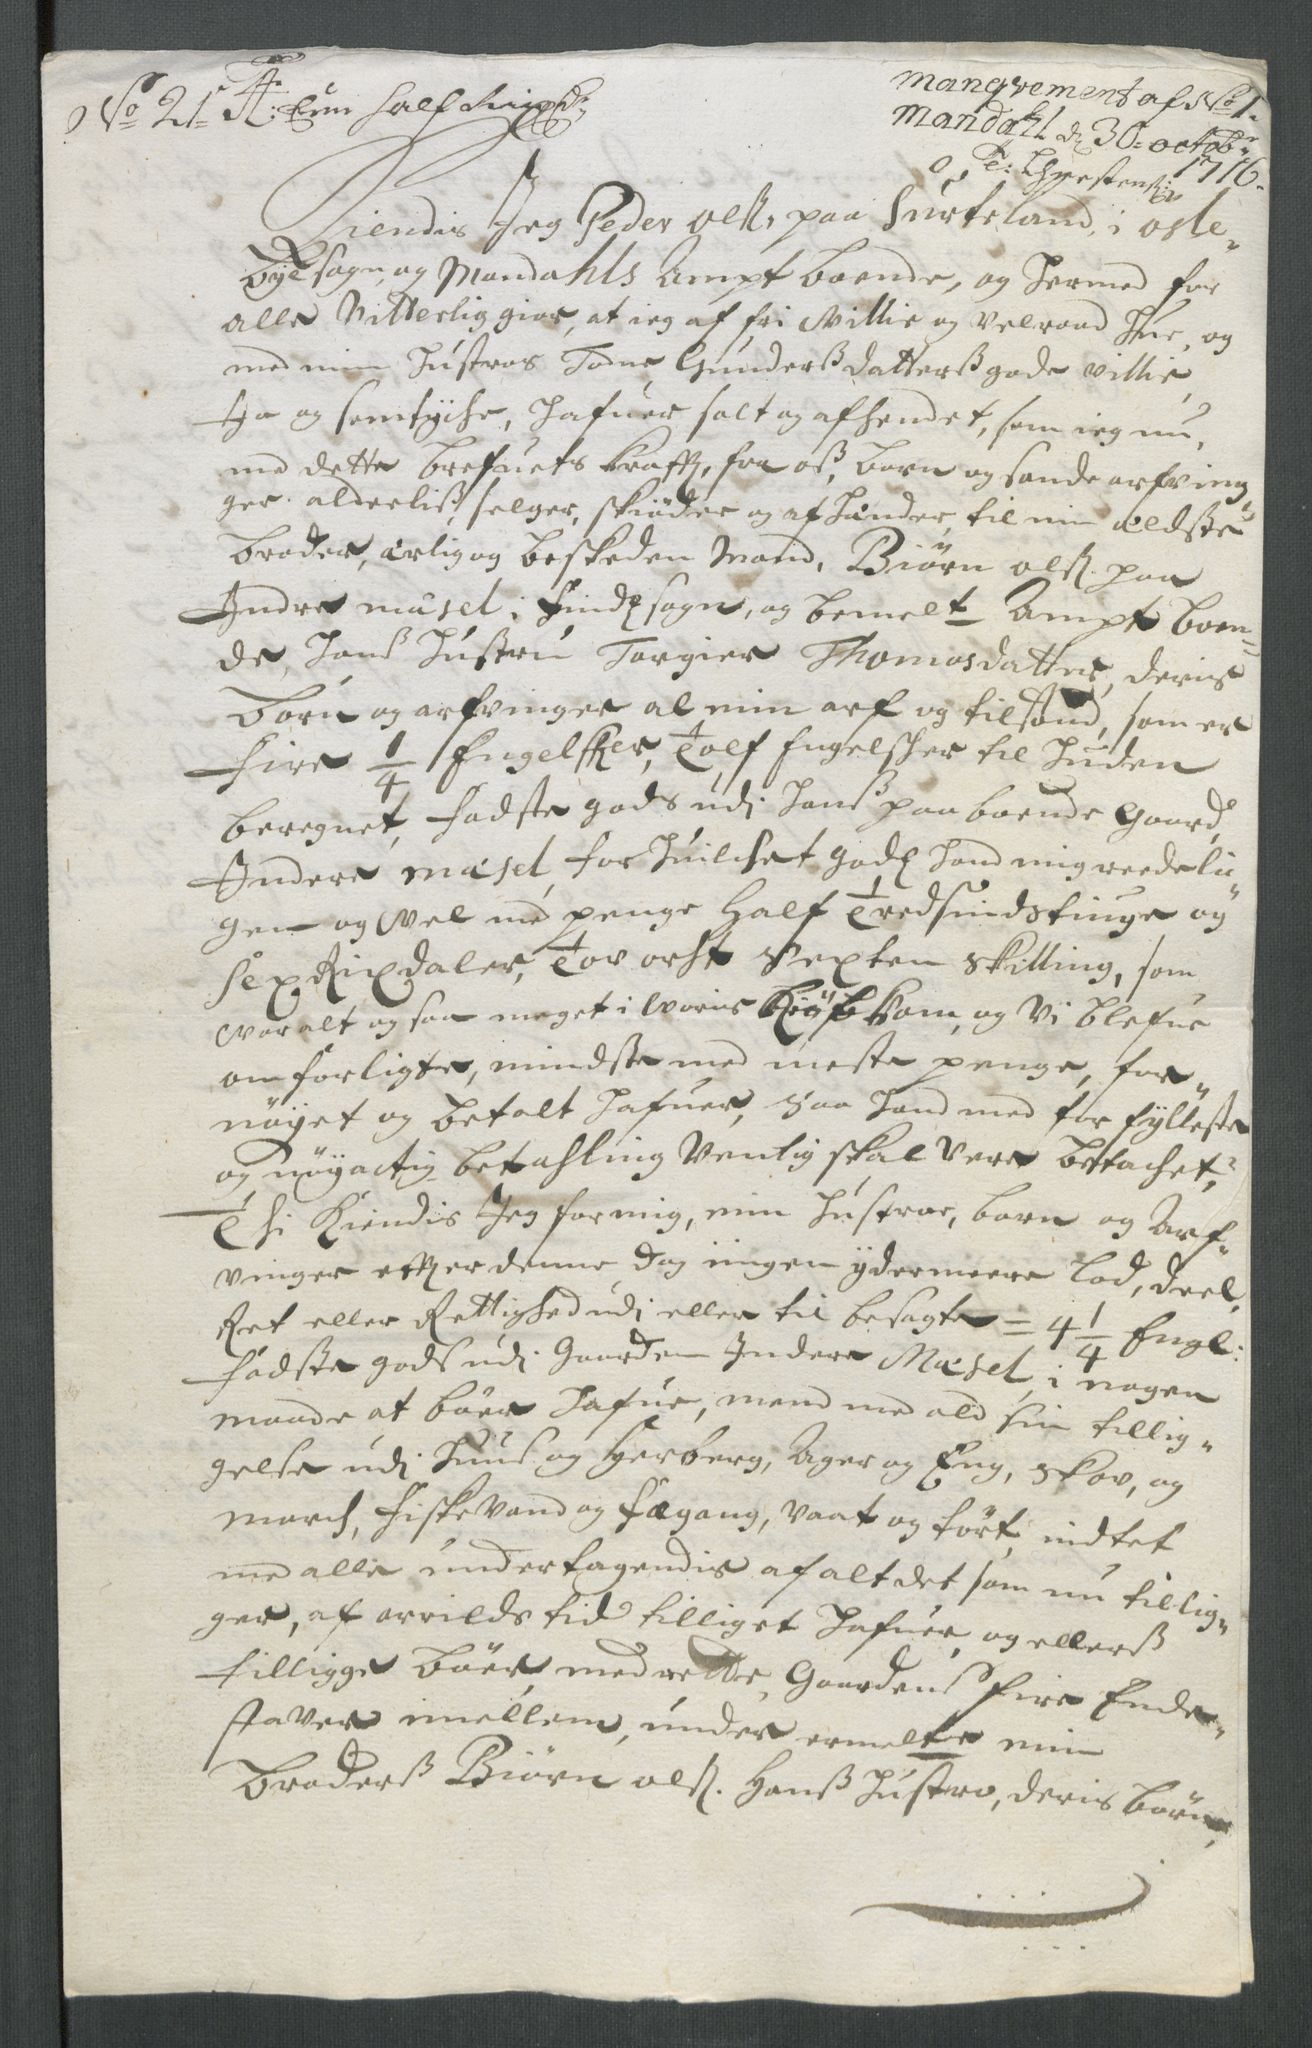 No 21 A: Eem half Rixdr
manqvement af No 1.
Mandahl d 30: octobr
1716.
T: Christensen
Kiendis Jeg Peder olß. paa Surteland, i osle-
bye sogn, og Mandahls Ampt boende, og hermed for
alle Vitterlig giør, at ieg af fri Willie og velraad Hue, og
med min Hustroes Tone Gunderßdatterß gode villie,
Ja og samtyche, hafuer solt og afhendet, som ieg nu,
med dette brefuets krafft, fra oß, børn og sande arfving
ger. alderliß, selger, skiøder og afhænder, til min ældste
broder, ærlig og beskeden Mand, Biørn olß. paa
Indre mæsel i Findß sogn, og bemelte Ampt boen-
de, hans Hustru Torgier Thomasdatter, deris
børn og arfvinger al min arf og tilstand, som er
fire 1/4 Engelsker, Tolf Engelscher til Huden
beregnet, Fadste gods udi hans paaboende Gaard
Indere mæsel, for huilchet godß hand mig reedeli-
gen og vel med penge Half Tredsindstiuge og
sex Rixdaler, Tov ort sexten skilling, som
var alt og saa meget i voris Kiøb kom, og Vi blefue
om forligte, mindste med meste penge, for-
nøyet og betalt hafuer, saa hand med for fylleste
og nøyactig betahling Venlig skal være betachet,
Thi Kiendis Jeg for mig, min Hustroe, børn og Arf-
vinger effter denne dag ingen ydermeere Lod, deel,
Ret eller Rettighed udi eller til besagte = 4 1/4 Engl:
Fadste gods udi Gaarden Indere Mæsel, i nogen
maade at bøer hafue, mend med ald sin tillig-
gelse udi Huus og Herberg, Ager og Eng, skov, og
march, fiskevand og Fægang, vaat og tørt, indtet
med alle undertagendis af alt det som nu tillig-
ger, af arrilds tid tilliget hafuer, og ellerß
tilligge bøer, med rette, Gaardens fire Ende-
staver imellem, under ermelte min
broderß Biørn olß. Hanß Hustro, deris børn,